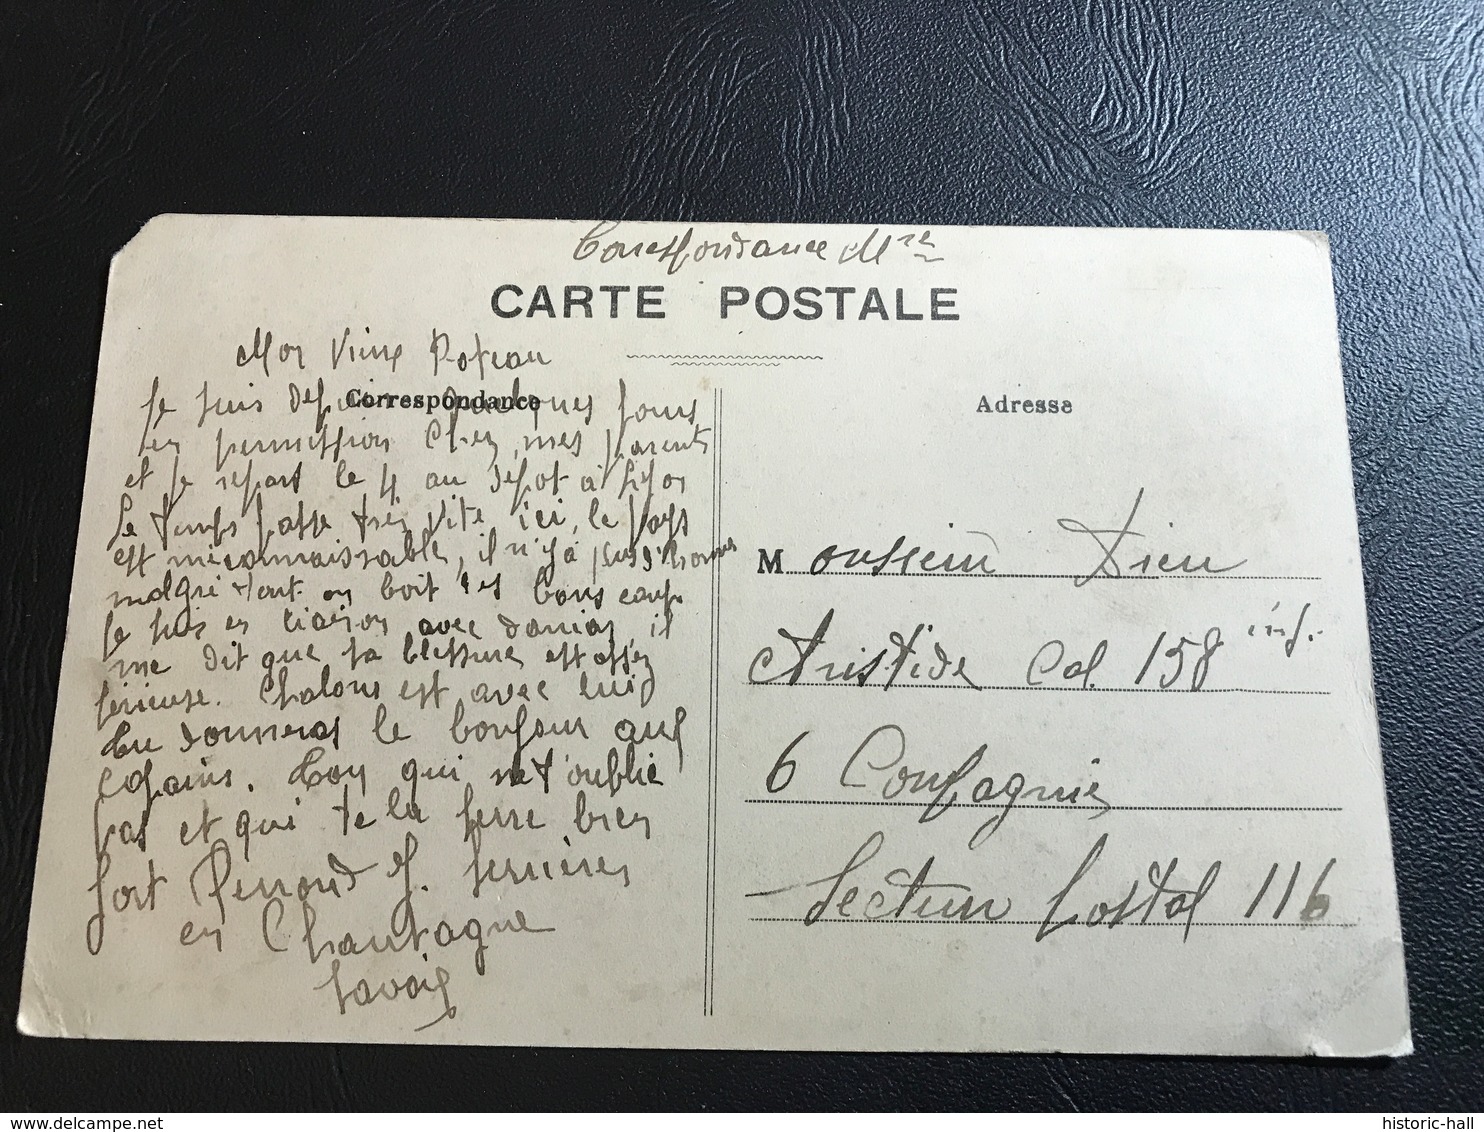 Correspondance Mre
CARTE POSTALE
Mon Vieux Poteau
Correspondance
Je suis depuis quelques jours
en permission chez mes parents
et je repars le 4 au depot à Lyon
Le temps passe très vite ici, le pays
est méconnaissable, il n'y a plus d'hommes
malgré tout on boit des bons coups
Je suis en liaison avec il
me dit que ta blessure est assez
sérieuse. Chalons est avec lui
tu donneras le bonjour aux
copains. Ton qui ne t'oublie
pas et qui te la serre bien
fort Perroud J. Serrières
en Chautagne
Savoie
Adresse
Monsieur Dieu
Aristide Col. 158 inf.
6 Compagnie
Secteur Postal 116
historic-hall